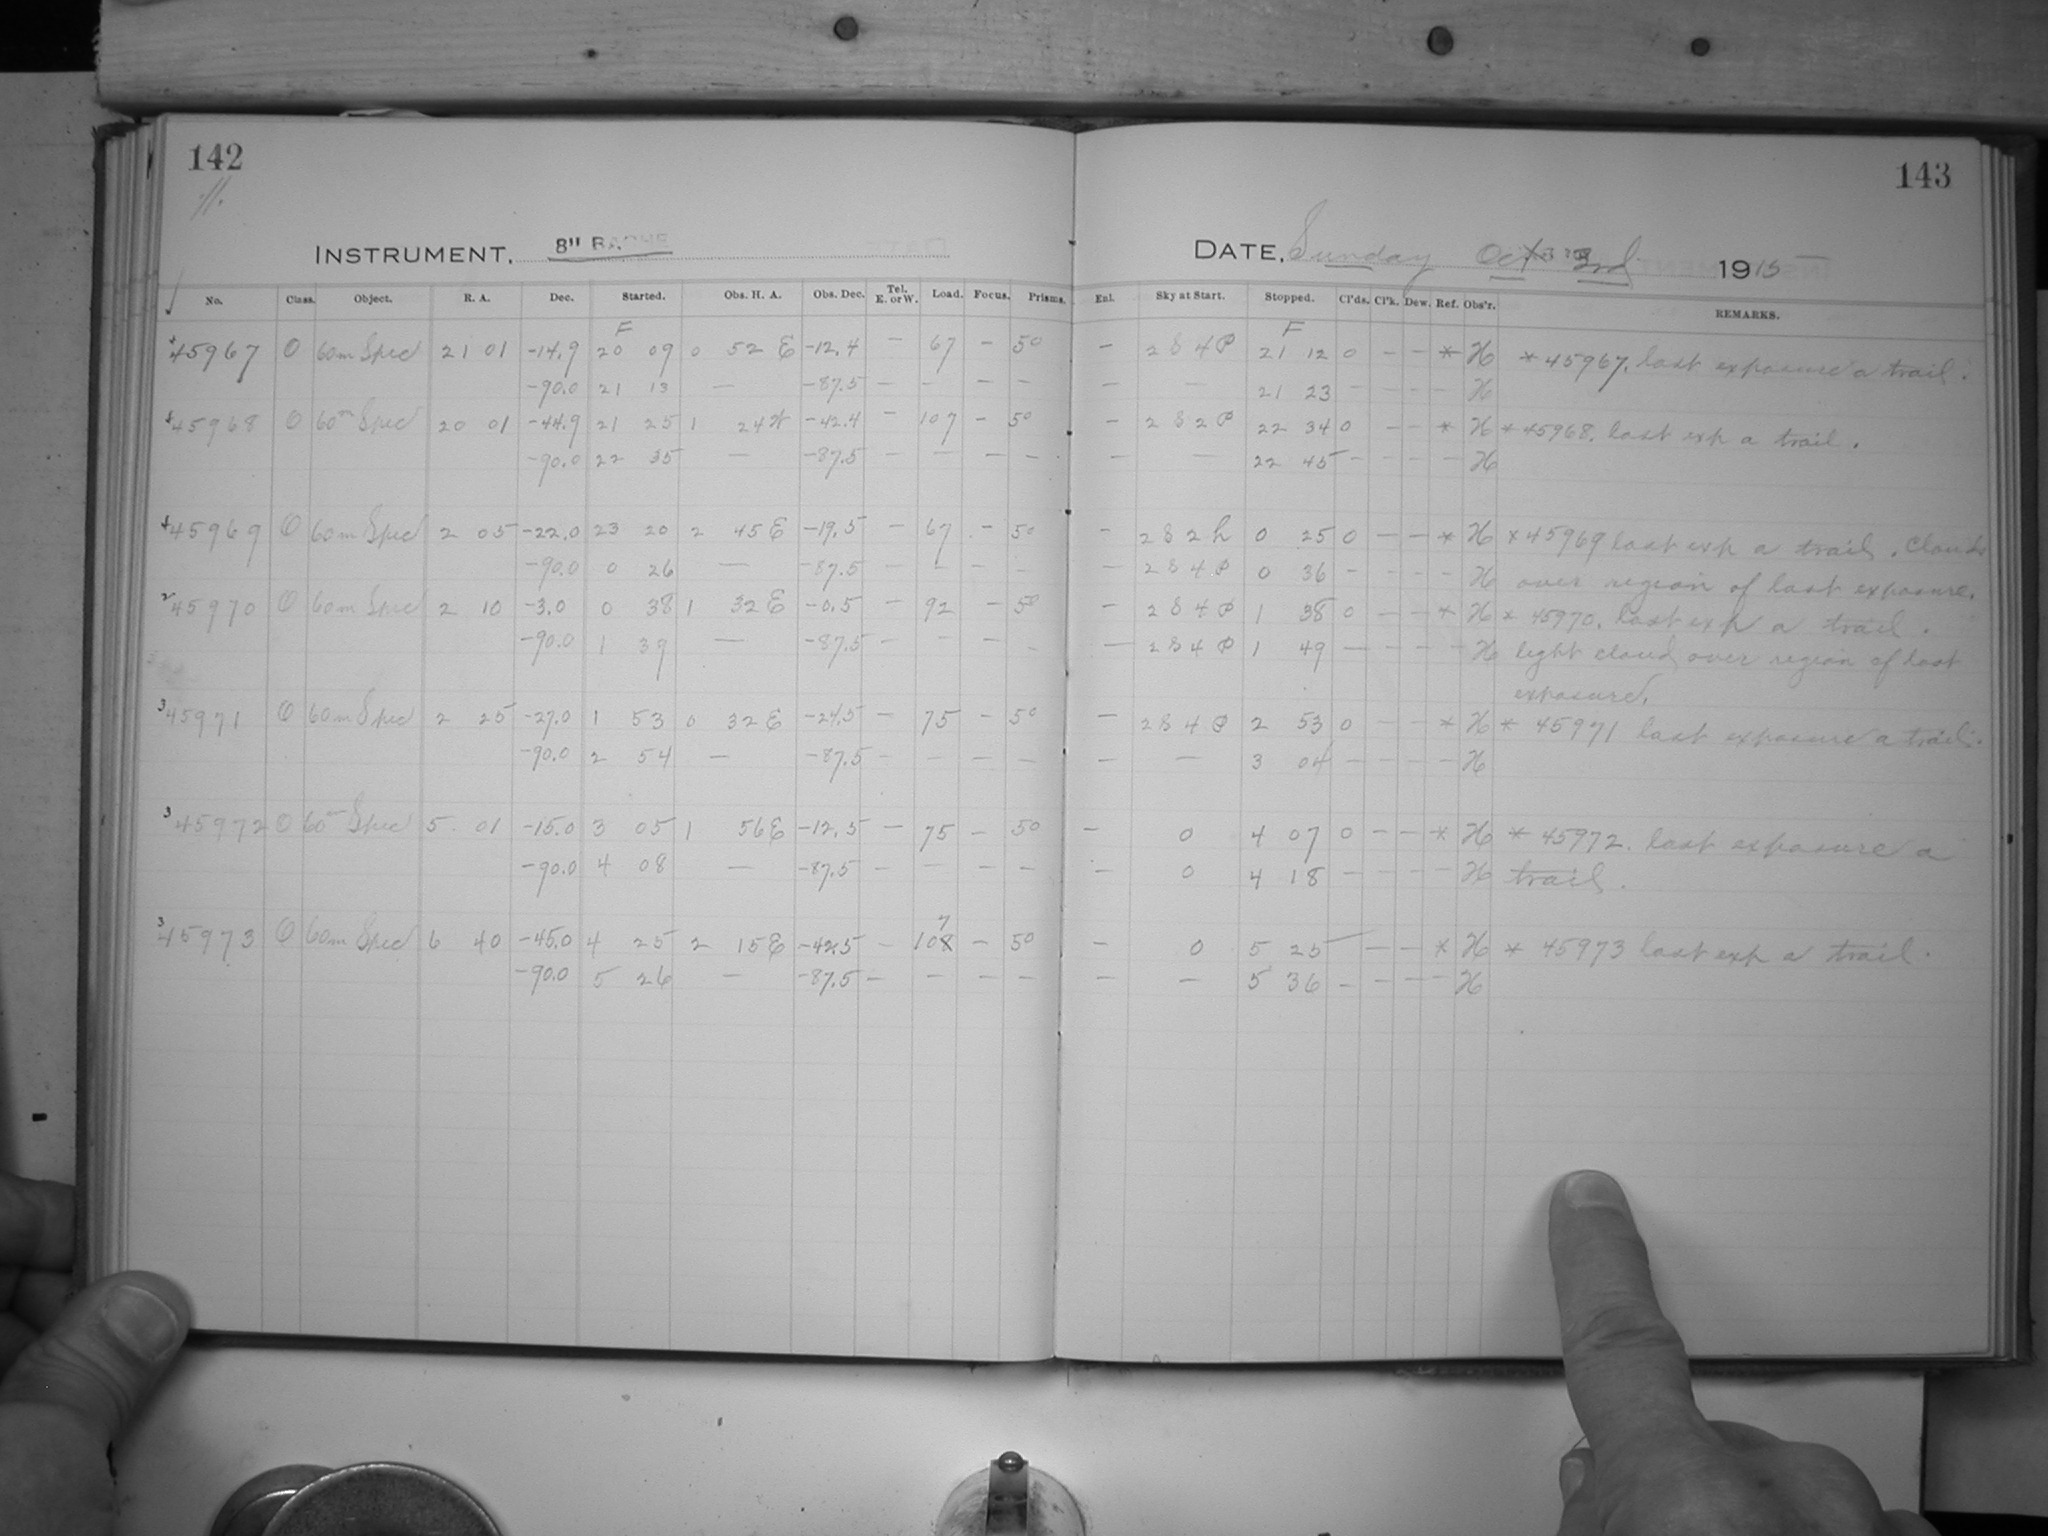 142
143
INSTRUMENT. 8" BACHE
DATE. Sunday Oct 3rd 1915
No. Class. Object. R. A. Dec. Started. Obs. H. A. Obs. Dec. Tel. E. or W. Load. Focus. Prisms. Enl. Sky at Start. Stopped. Cl'ds. Cl'k. Dew. Ref. Obs'r. REMARKS.
F F
45967 O 60m Spec 21 01 -14.9 20 09 0 52 E -12.4 - 67 - 50 - 2 S 4 P 21 12 0 - - * H * 45967. last exposure a trail.
-90.0 21 13 - -87.5 - - - - - - 21 23 - - - - H
45968 O 60m Spec 20 01 -44.9 21 25 1 24 W -42.4 - 107 - 50 - 2 S 2 P 22 34 0 - - * H * 45968. last exp a trail.
-90.0 22 35 - -87.5 - - - - - - 22 45 - - - - H
45969 O 60m Spec 2 05 -22.0 23 20 2 45 E -19.5 - 67 - 50 - 2 S 2 h 0 25 0 - - * H * 45969 last exp a trail. Clouds
-90.0 0 26 - -87.5 - - - - - 2 S 4 P 0 36 - - - - H over region of last exposure.
2 45970 O 60m Spec 2 10 -3.0 0 38 1 32 E -0.5 - 92 - 50 - 2 S 4 P 1 38 0 - - * H * 45970. last exp a trail.
-90.0 1 39 - -87.5 - - - - - 2 S 4 P 1 49 - - - - H light cloud over region of last
exposure.
3 45971 O 60m Spec 2 25 -27.0 1 53 0 32 E -24.5 - 75 - 50 - 2 S 4 P 2 53 0 - - * H * 45971 last exposure a trail.
-90.0 2 54 - -87.5 - - - - - - 3 04 - - - - H
3 45972 O 60m Spec 5 01 -15.0 3 05 1 56 E -12.5 - 75 - 50 - 0 4 07 0 - - * H * 45972. last exposure a
-90.0 4 08 - -87.5 - - - - - 0 4 18 - - - - H trail.
7
3 45973 O 60m Spec 6 40 -45.0 4 25 2 15 E -42.5 - 108 - 50 - 0 5 25 - - - * H * 45973 last exp a trail.
-90.0 5 26 - -87.5 - - - - - - 5 36 - - - - H